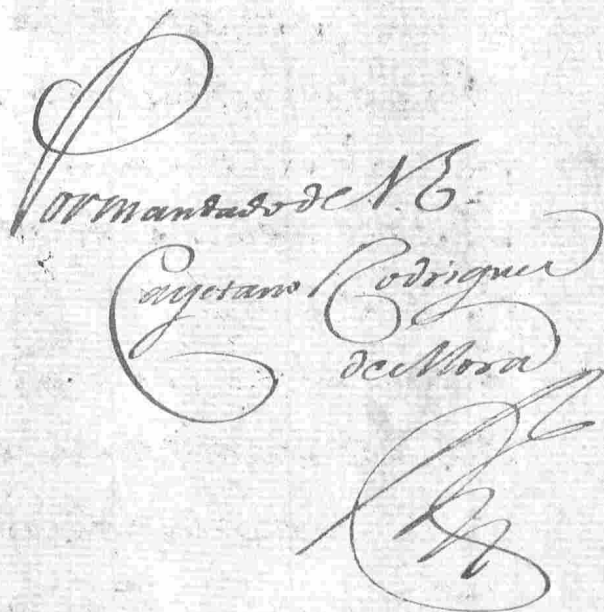 Por mandado de V. E.
Cayetano Rodriguez
de Mora